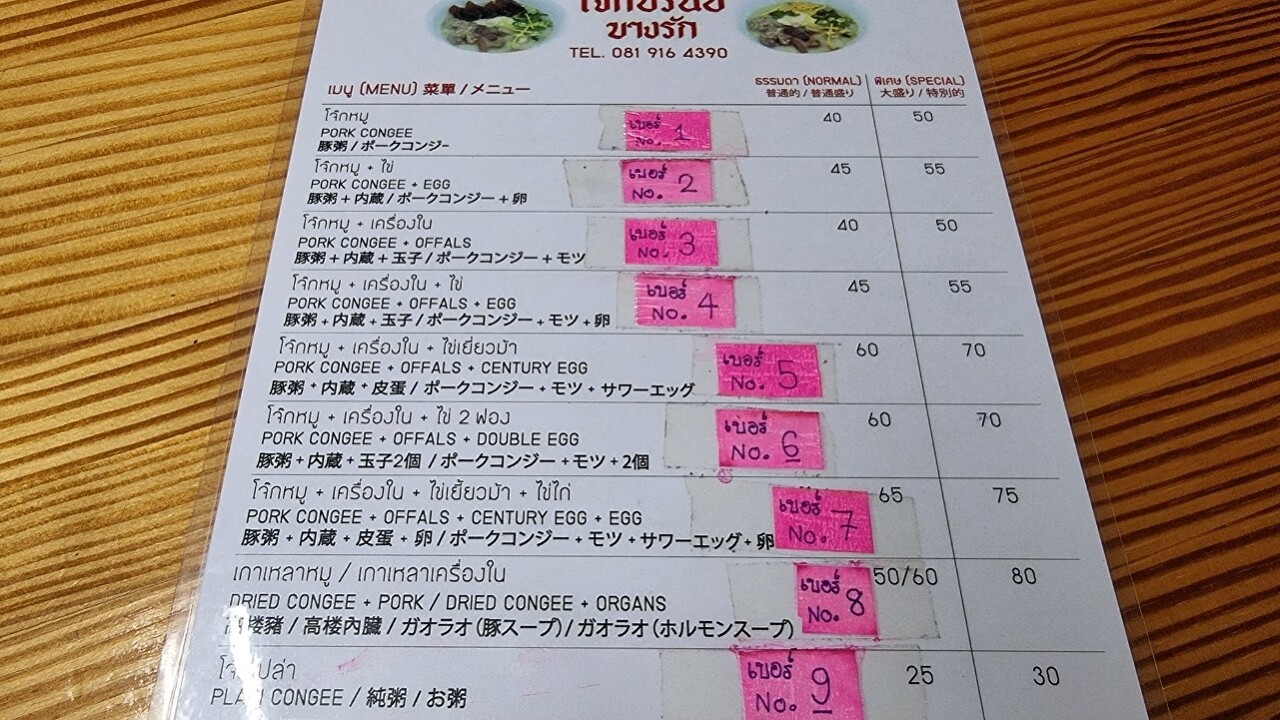 บางรัก
TEL. 081 916 4390
เมนู (MENU) 菜單 / メニュー
ธรรมดา (NORMAL) พิเศษ (SPECIAL)
普通的 / 普通盛り 大盛り / 特別的
โจ๊กหมู เบอร์ No. 1 40 50
PORK CONGEE
豚粥 / ポークコンジー
โจ๊กหมู + ไข่ เบอร์ No. 2 45 55
PORK CONGEE + EGG
豚粥 + 内蔵 / ポークコンジー + 卵
โจ๊กหมู + เครื่องใน เบอร์ No. 3 40 50
PORK CONGEE + OFFALS
豚粥 + 内蔵 + 玉子 / ポークコンジー + モツ
โจ๊กหมู + เครื่องใน + ไข่ เบอร์ No. 4 45 55
PORK CONGEE + OFFALS + EGG
豚粥 + 内蔵 + 玉子 / ポークコンジー + モツ + 卵
โจ๊กหมู + เครื่องใน + ไข่เยี่ยวม้า เบอร์ No. 5 60 70
PORK CONGEE + OFFALS + CENTURY EGG
豚粥 + 内蔵 + 皮蛋 / ポークコンジー + モツ + サワーエッグ
โจ๊กหมู + เครื่องใน + ไข่ 2 ฟอง เบอร์ No. 6 60 70
PORK CONGEE + OFFALS + DOUBLE EGG
豚粥 + 内蔵 + 玉子2個 / ポークコンジー + モツ + 2個
โจ๊กหมู + เครื่องใน + ไข่เยี้ยวม้า + ไข่ไก่ เบอร์ No. 7 65 75
PORK CONGEE + OFFALS + CENTURY EGG + EGG
豚粥 + 内蔵 + 皮蛋 + 卵 / ポークコンジー + モツ + サワーエッグ + 卵
เกาเหลาหมู / เกาเหลาเครื่องใน เบอร์ No. 8 50/60 80
DRIED CONGEE + PORK / DRIED CONGEE + ORGANS
高楼豬 / 高楼內臓 / ガオラオ (豚スープ) / ガオラオ (ホルモンスープ)
โจ๊กเปล่า เบอร์ No. 9 25 30
PLAIN CONGEE / 純粥 / お粥